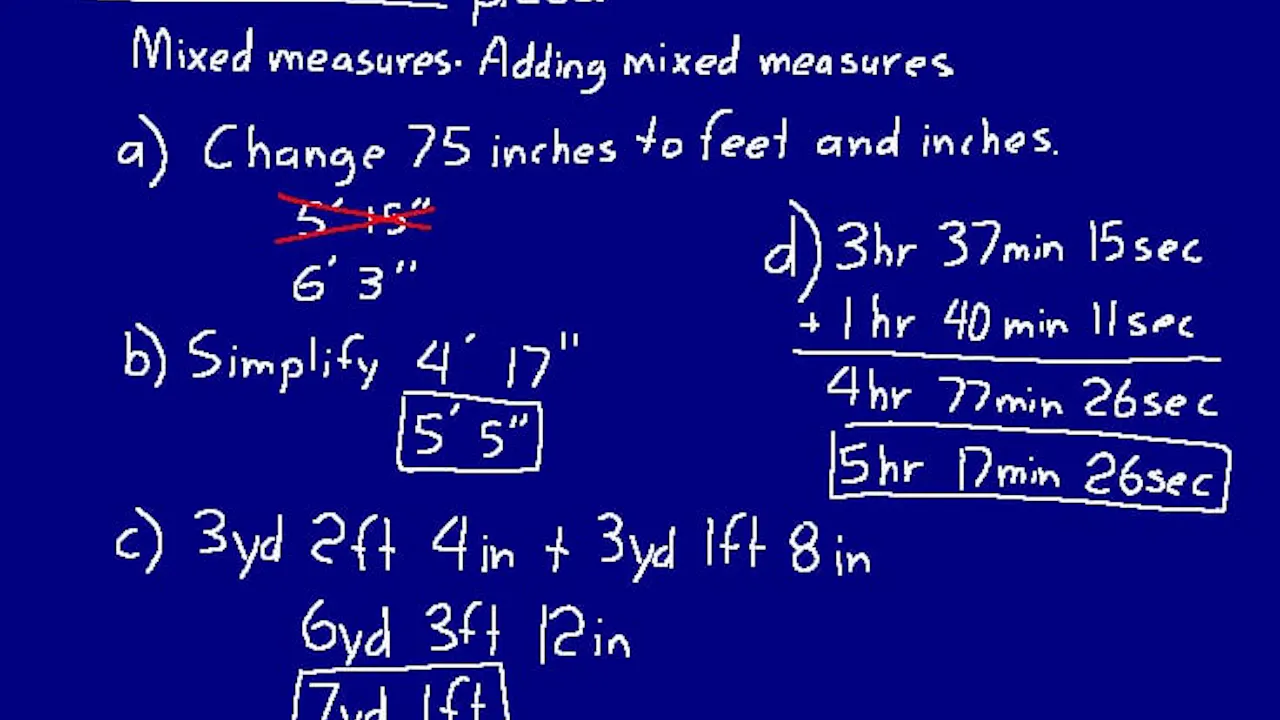 Mixed measures. Adding mixed measures
a) Change 75 inches to feet and inches.
5' 15"
6' 3"
b) Simplify 4' 17"
5' 5"
c) 3yd 2ft 4in + 3yd 1ft 8in
6yd 3ft 12in
7yd 1ft
d) 3hr 37min 15sec
+ 1hr 40min 11sec
4hr 77min 26sec
5hr 17min 26sec